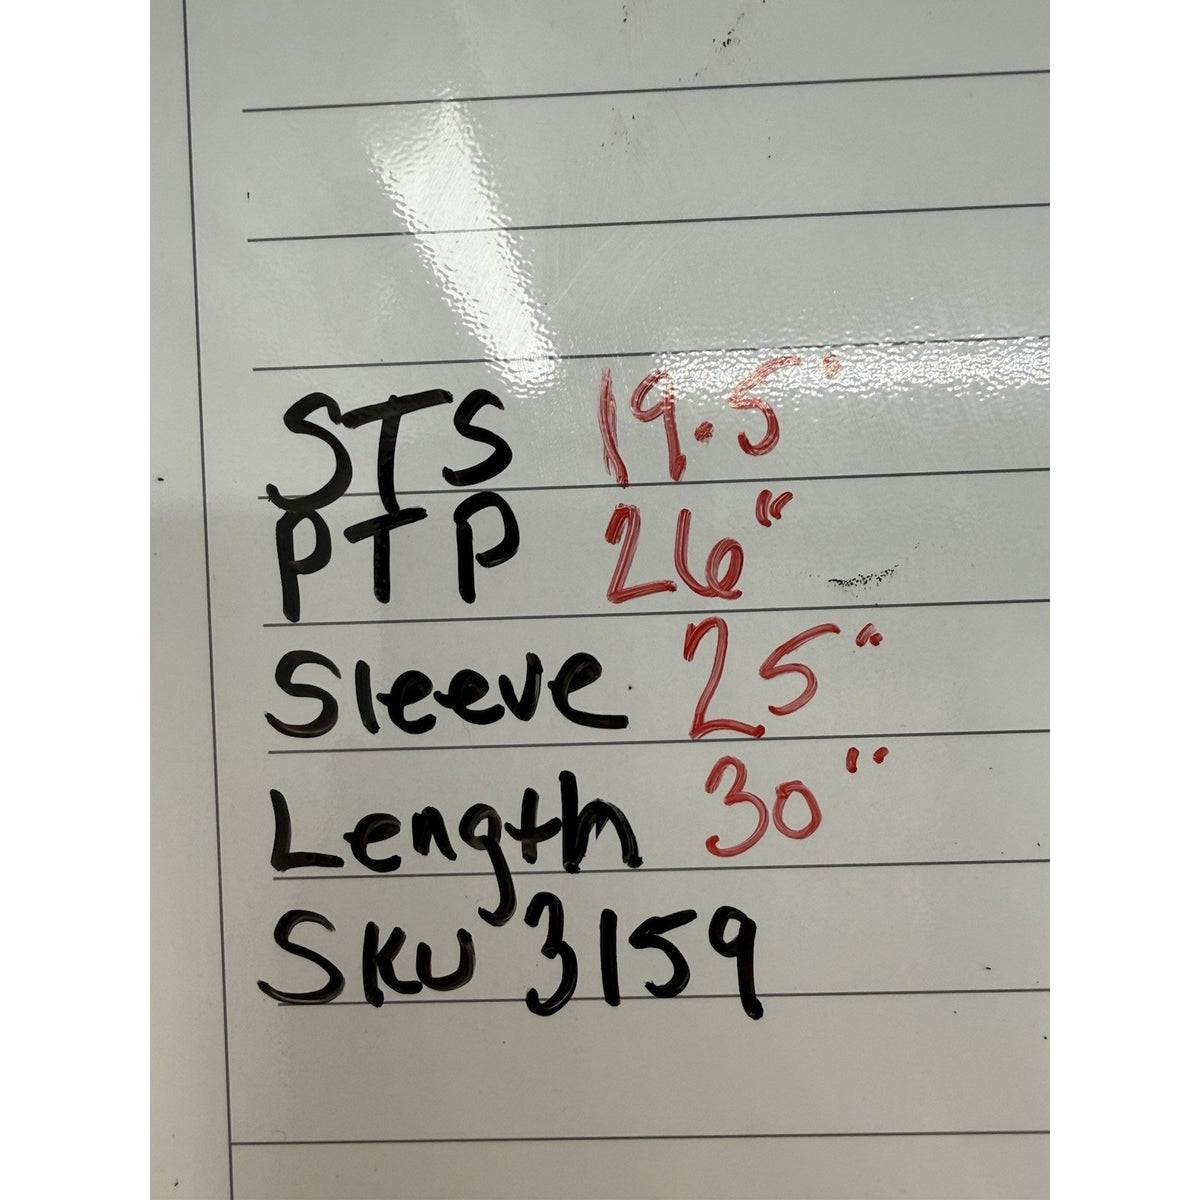 STS 19.5"
PTP 26"
Sleeve 25"
Length 30"
SKU 3159